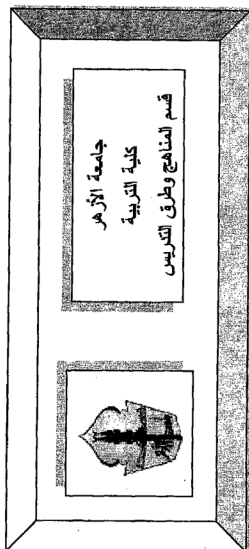 جامعة الأزهر
كلية التربية
قسم المناهج وطرق التدريس